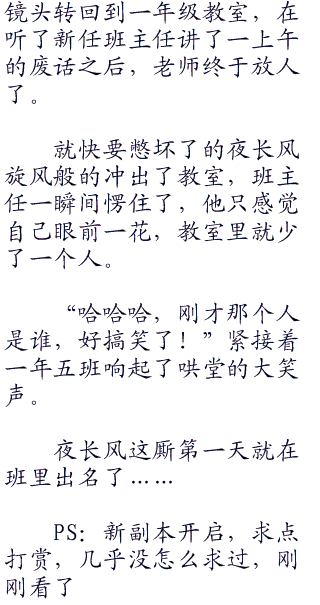 镜头转回到一年级教室，在
听了新任班主任讲了一上午
的废话之后，老师终于放人
了。
就快要憋坏了的夜长风
旋风般的冲出了教室，班主
任一瞬间愣住了，他只感觉
自己眼前一花，教室里就少
了一个人。
“哈哈哈，刚才那个人
是谁，好搞笑了！”紧接着
一年五班响起了哄堂的大笑
声。
夜长风这厮第一天就在
班里出名了……
PS：新副本开启，求点
打赏，几乎没怎么求过，刚
刚看了